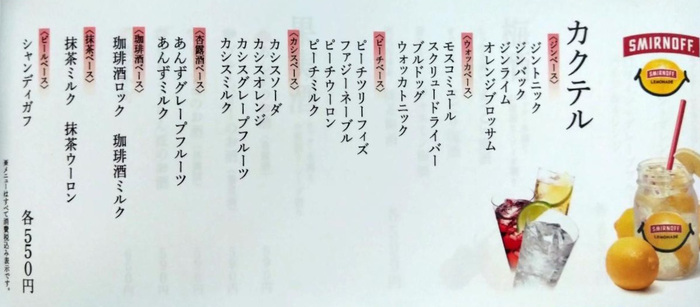 SMIRNOFF
SMIRNOFF
LEMONADE
SMIRNOFF
LEMONADE
カクテル
〈ジンベース〉
ジントニック
ジンバック
ジンライム
オレンジブロッサム
〈ウォッカベース〉
モスコミュール
スクリュードライバー
ブルドッグ
ウォッカトニック
〈ピーチベース〉
ピーチツリーフィズ
ファジーネーブル
ピーチウーロン
ピーチミルク
〈カシスベース〉
カシスソーダ
カシスオレンジ
カシスグレープフルーツ
カシスミルク
〈杏露酒ベース〉
あんずグレープフルーツ
あんずミルク
〈珈琲酒ベース〉
珈琲酒ロック 珈琲酒ミルク
〈抹茶ベース〉
抹茶ミルク 抹茶ウーロン
〈ビールベース〉
シャンディガフ
各550円
※メニューはすべて消費税込み表示です。